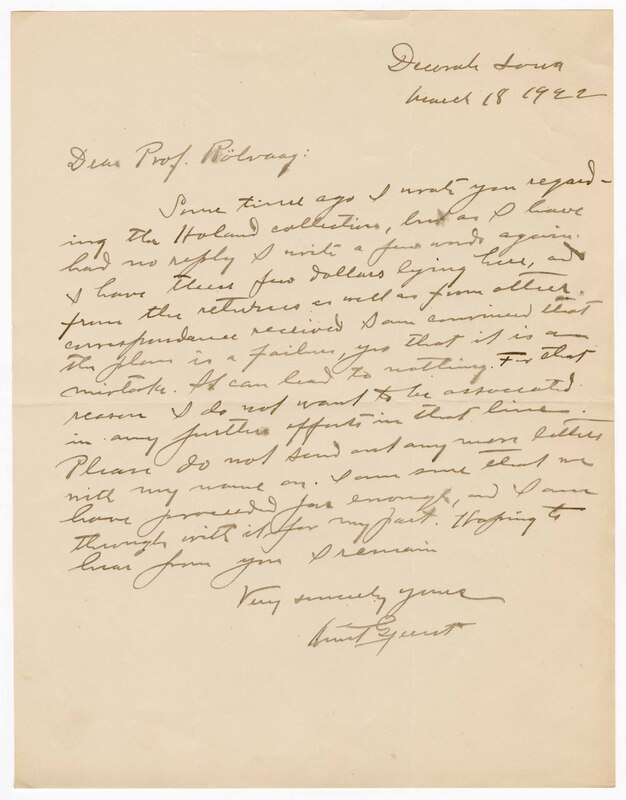 Decorah Iowa
March 18 1922
Dear Prof. Rölvaag:
Some time ago I wrote you regard-
ing the Holand collection, but as I have
had no reply I write a few words again.
I have these few dollars lying here, and
from the returns as well as from other
correspondence received I am convinced that
the plan is a failure, yes that it is a
mistake. It can lead to nothing. For that
reason I do not want to be associated
in any further efforts in that line.
Please do not send out any more letters
with my name on. I am sure that we
have proceeded far enough, and I am
through with it for my part. Hoping to
hear from you I remain
Very sincerely yours
Knut Gjerset